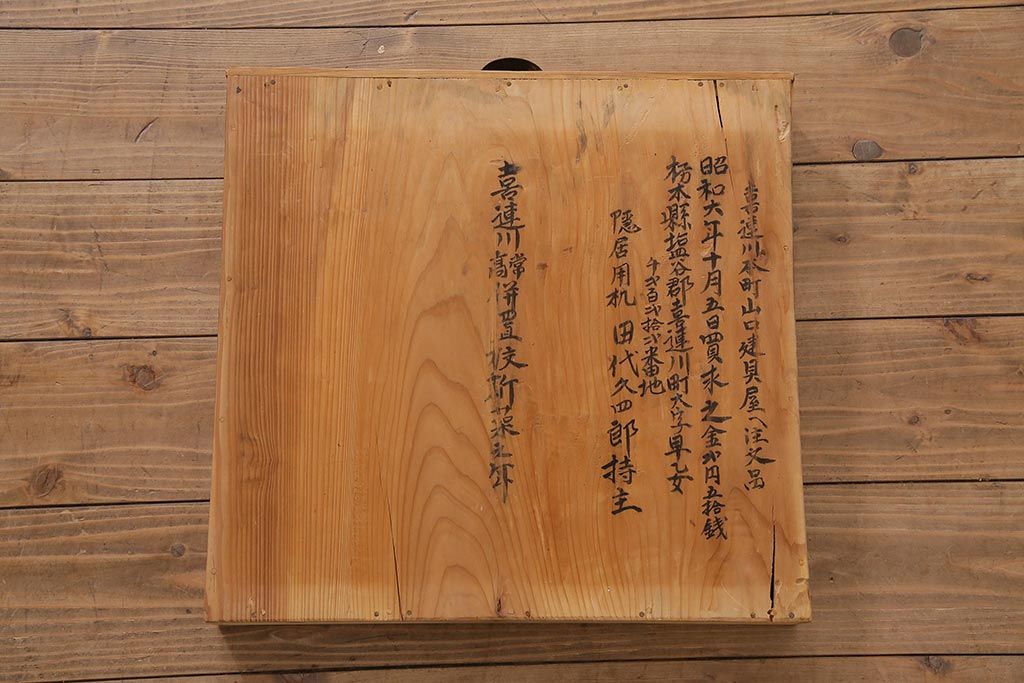 喜連川本町山口建具屋へ注文品
昭和六年十月五日買求之金弐円五拾銭
栃木縣塩谷郡喜連川町大字早乙女
千弐百弐拾六番地
隠居用机 田代久四郎持主
喜連川尋常高併置校新築之年